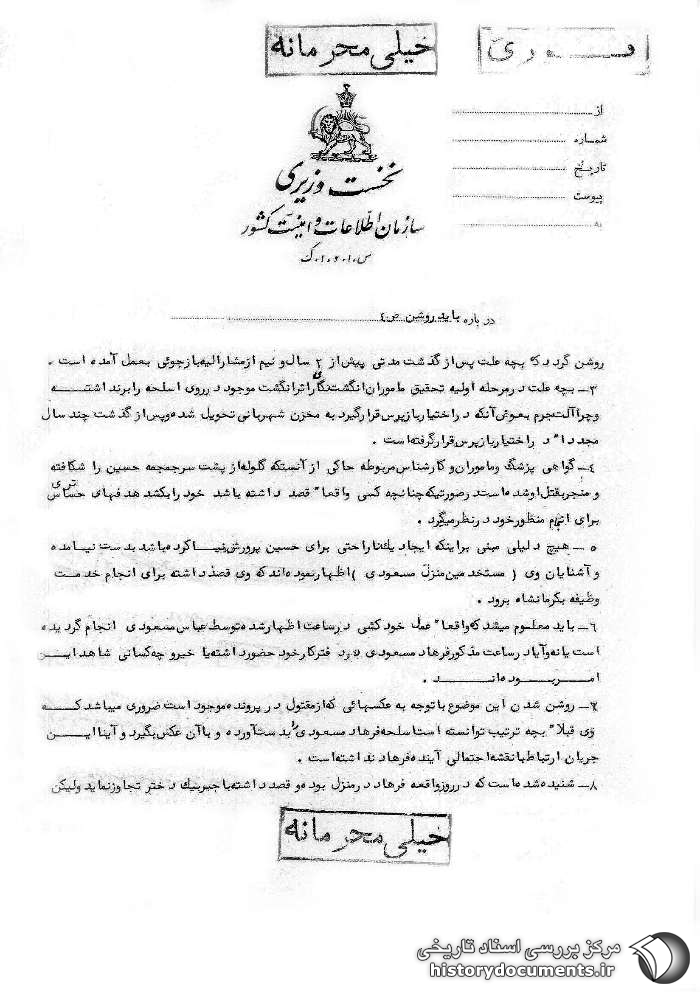 خیلی محرمانه
فوری
از
شماره
تاریخ
پیوست
به
نخست وزیری
سازمان اطلاعات و امنیت کشور
س.ا.و.ا.ک
درباره باید روشن ص٤
روشن گردد که بچه علت پس از گذشت مدتی پیش از ٢ سال و نیم از مشارالیه بازجوئی بعمل آمده است .
٣ــ بچه علت در مرحله اولیه تحقیق ماموران انگشت نگاری اثر انگشت موجود در روی اسلحه را برنداشته
و چرا آلت جرم بعوض آنکه در اختیار بازپرس قرار گیرد به مخزن شهربانی تحویل شده و پس از گذشت چند سال
مجددا" در اختیار بازپرس قرار گرفته است .
٤ــ گواهی پزشک و ماموران و کارشناس مربوطه حاکی از آنستکه گلوله از پشت سر جمجمه حسین را شکافته
و منجر بقتل او شده است در صورتیکه چنانچه کسی واقعا" قصد داشته باشد خود را بکشد هدفهای حساس تری
برای انجام منظور خود در نظر میگیرد .
٥ ــ هیچ دلیلی مبنی بر اینکه ایجاد یک ناراحتی برای حسین پرورش نیا کرده باشد بدست نیامده
و آشنایان وی ( مستخدمین منزل مسعودی ) اظهار نموده اند که وی قصد داشته برای انجام خدمت
وظیفه بکرمانشاه برود .
٦ــ باید معلوم میشد که واقعا" عمل خودکشی در ساعت اظهار شده توسط عباس مسعودی انجام گردیده
است یا نه و آیا در ساعت مذکور فرهاد مسعودی در دفتر کار خود حضور داشته یا خیر و چه کسانی شاهد این
امر بوده اند .
٧ــ روشن شدن این موضوع با توجه به عکسهائی که از مقتول در پرونده موجود است ضروری میباشد که
وی قبلا" بچه ترتیب توانسته است اسلحه فرهاد مسعودی را بدست آورده و با آن عکس بگیرد و آیا این
جریان ارتباط با نقشه احتمالی آینده فرهاد نداشته است .
٨ــ شنیده شده است که در روز واقعه فرهاد در منزل بوده و قصد داشته با جبر بیک دختر تجاوز نماید ولیکن
خیلی محرمانه
مرکز بررسی اسناد تاریخی
historydocuments.ir